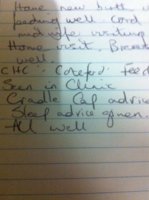 Home new birth v
feeding well. Cord
midwife visiting
Home visit. Breast
well.
CHC : Coreford : Feed
Seen in Clinic
Cradle Cap advice
Sleep advice given.
All well